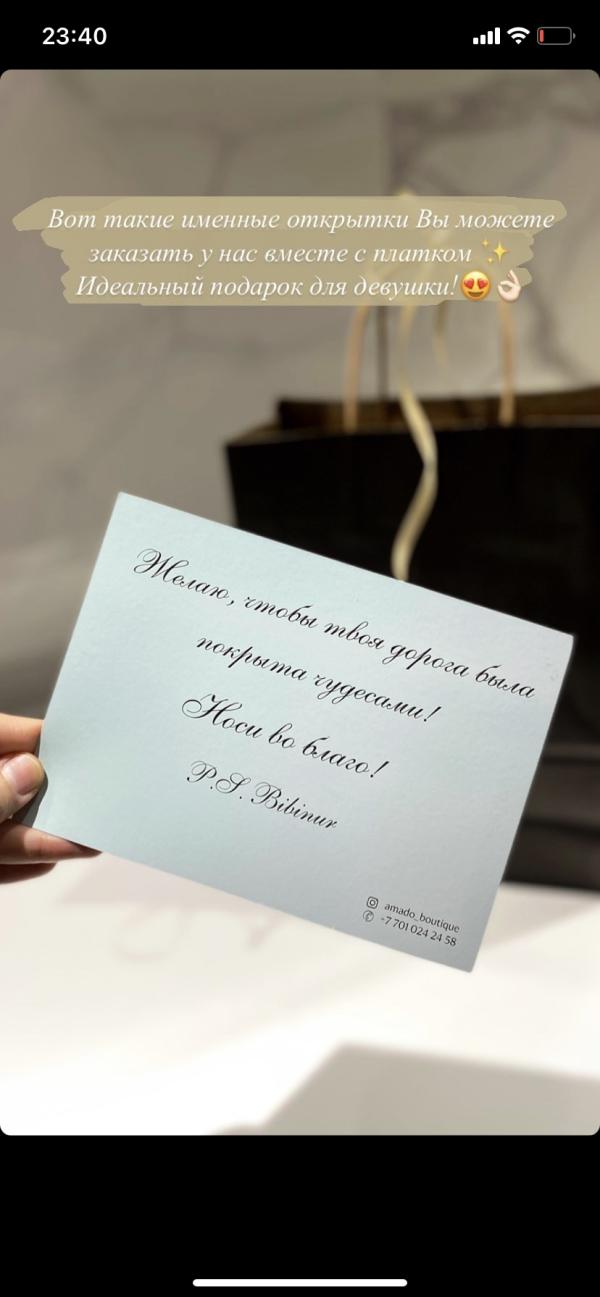 23:40
Вот такие именные открытки Вы можете
заказать у нас вместе с платком ✨
Идеальный подарок для девушки!😍👌🏻
Желаю, чтобы твоя дорога была
покрыта чудесами!
Носи во благо!
P.S. Bibinur
amado_boutique
+7 701 024 24 58